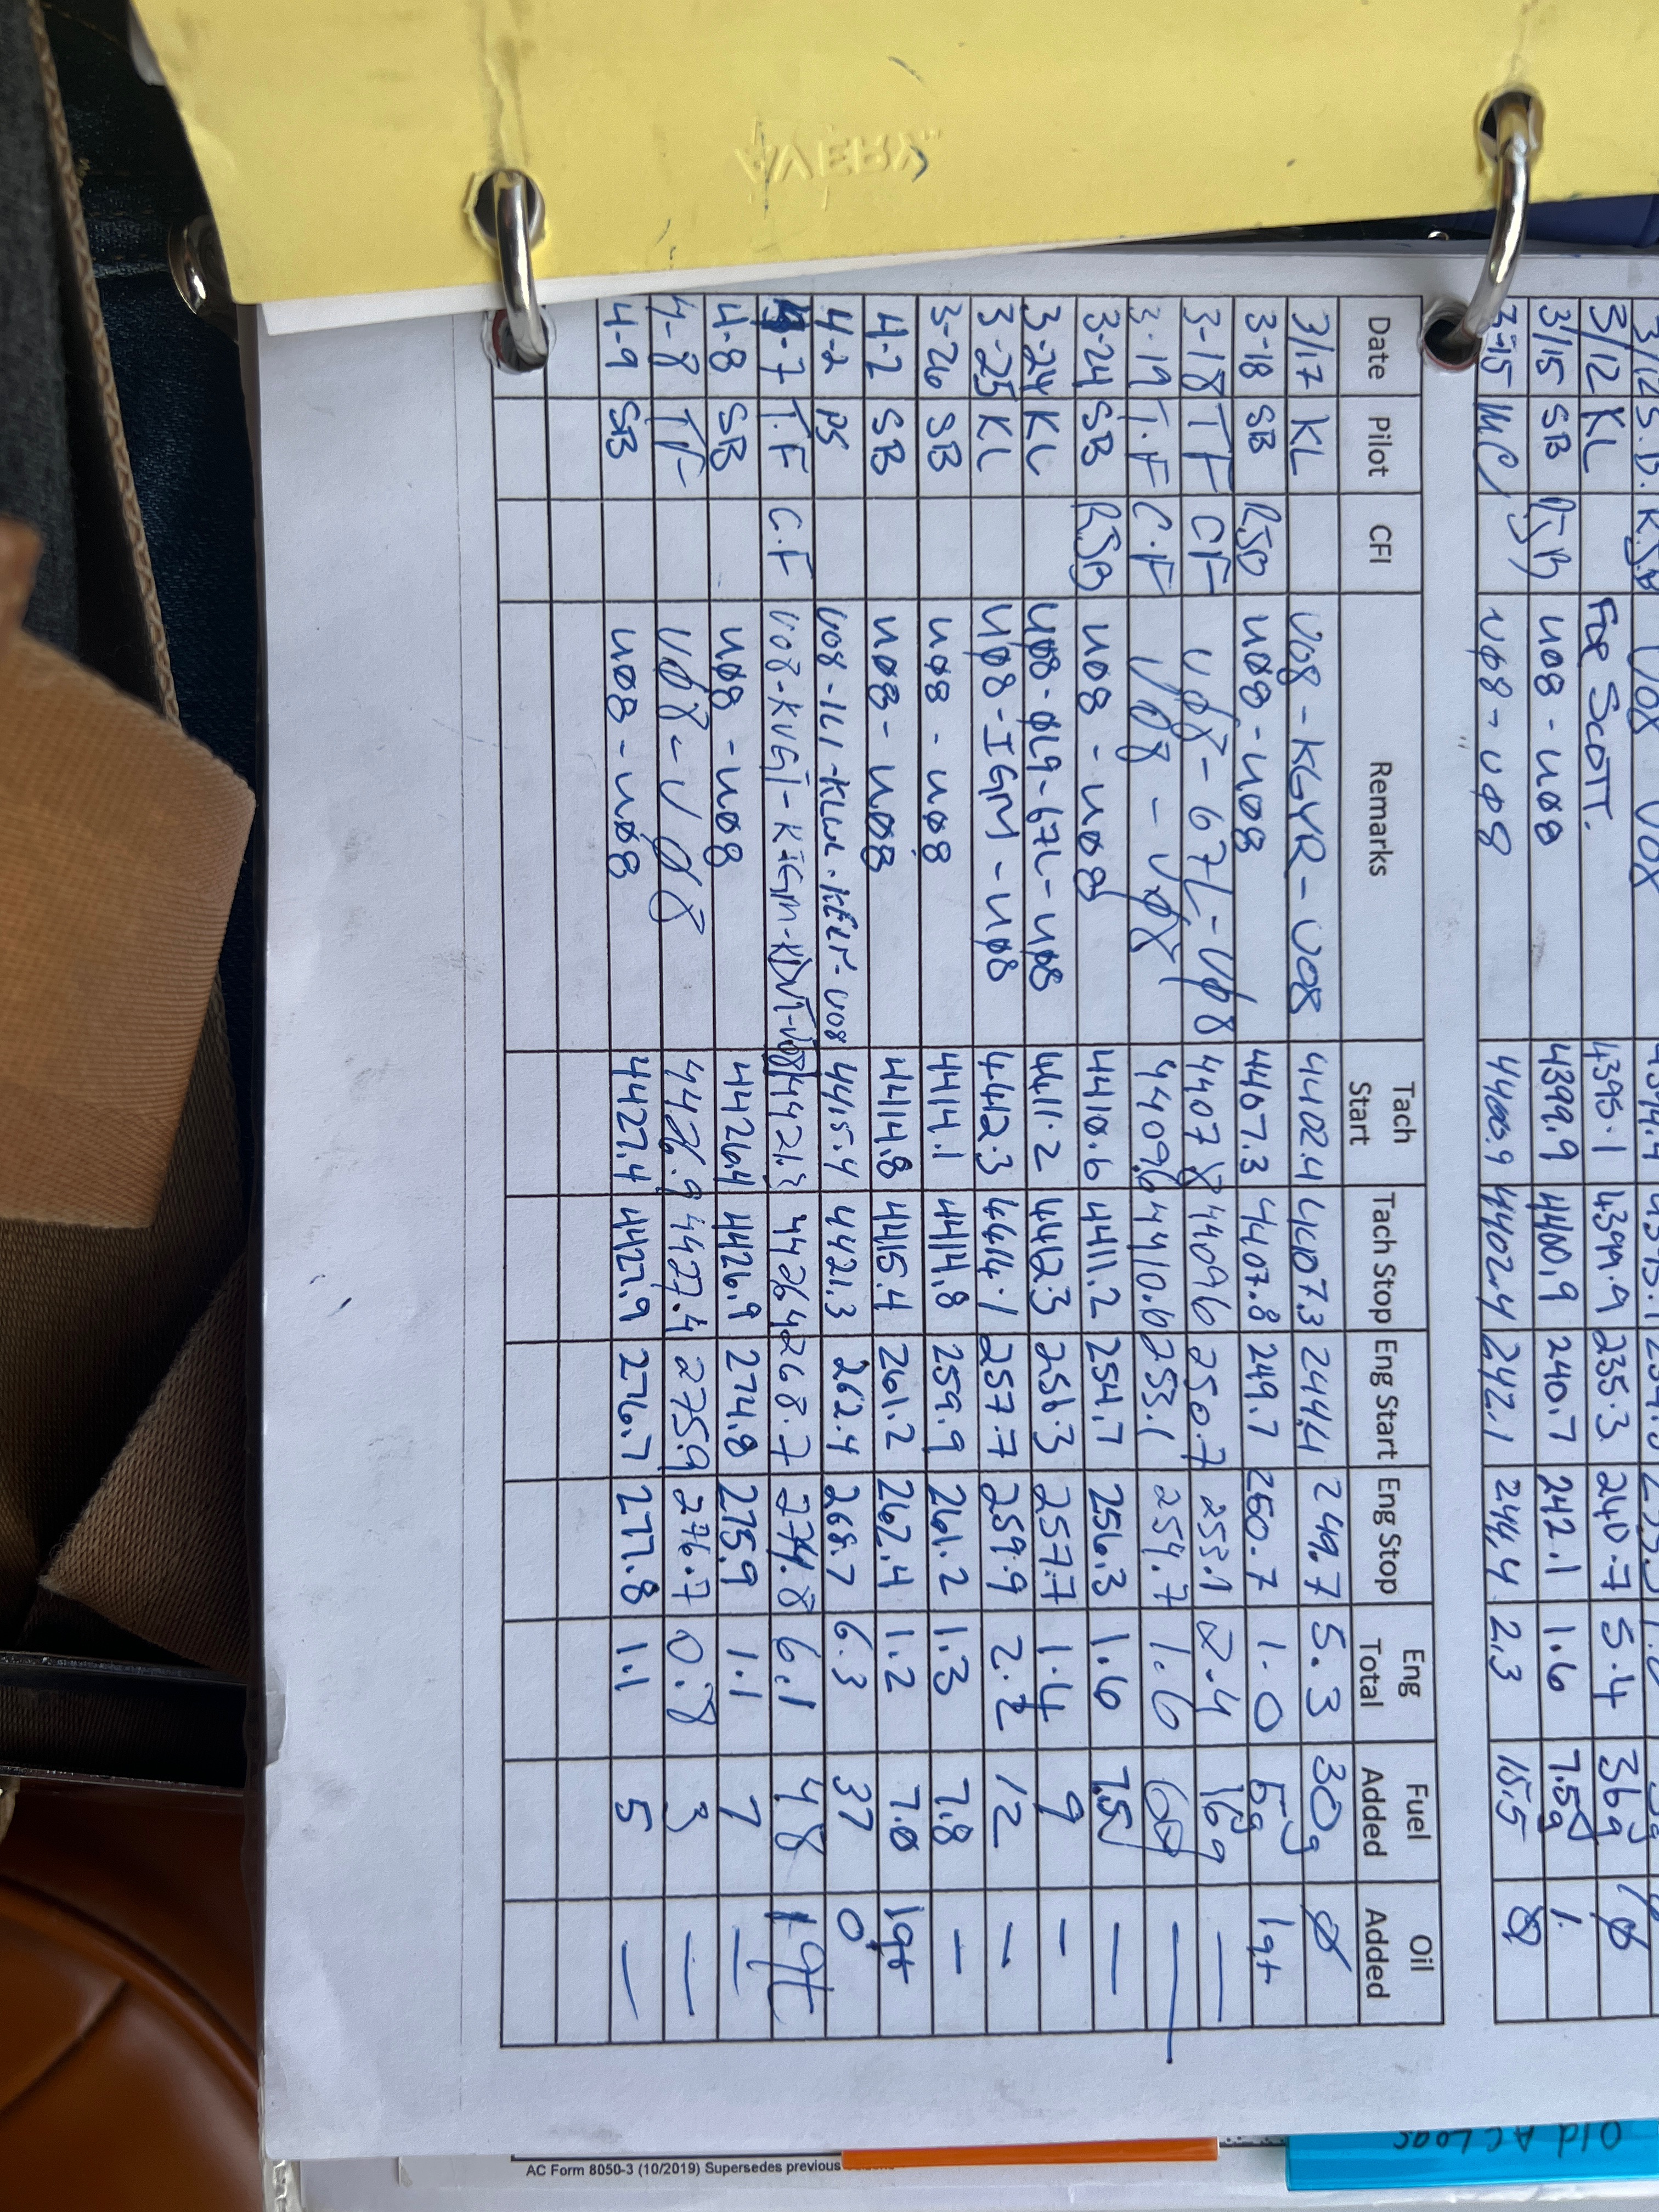 AVERY
3/12 S.B. RJB U08 U08
3/12 KL For Scott. 4395.1 4399.9 235.3 240.7 5.4 36g Ø
3/15 SB RJB U08 - U08 4399.9 4400.9 240.7 242.1 1.6 7.5g 1.
3-15 MC UØ8 - UØ8 4400.9 4402.4 242.1 244.4 2.3 15.5 Ø
Date Pilot CFI Remarks Tach Start Tach Stop Eng Start Eng Stop Eng Total Fuel Added Oil Added
3/17 KL U08 - KGYR - U08 4402.4 4407.3 244.4 249.7 5.3 30g Ø
3-18 SB RJB UØ8 - UØ8 4407.3 4407.8 249.7 250.7 1.0 5g 1qt
3-18 TF CF UØ8 - 67L - UØ8 4407 8 44096 250.7 253.1 2.4 16g —
3-19 T.F C.F UØ8 - UØ8 4409.6 4410.6 253.1 254.7 1.6 —
3-24 SB RJB UØ8 - UØ8 4410.6 4411.2 254.7 256.3 1.6 7.5 —
3-24 KL UØ8 - ØL9 - 67L - UØ8 4411.2 4412.3 256.3 257.7 1.4 9 —
3-25 KL UØ8 - IGM - UØ8 4412.3 4414.1 257.7 259.9 2.2 12 —
3-26 SB UØ8 - UØ8 4414.1 4414.8 259.9 261.2 1.3 7.8 —
4-2 SB UØ8 - UØ8 4414.8 4415.4 261.2 262.4 1.2 7.0 1qt
4-2 PS U08 - 1L1 - - U08 4415.4 4421.3 262.4 268.7 6.3 37 0
4-7 T.F C.F U08 - KVGT - KIGM - KDVT - U08 4421.3 44264 268.7 274.8 6.1 48 1 qt
4-8 SB UØ8 - UØ8 4426.4 4426.9 274.8 275.9 1.1 7 —
4-8 TF UØ8 - UØ8 4426.9 4427.4 275.9 276.7 0.8 3 —
4-9 SB UØ8 - UØ8 4427.4 4427.9 276.7 277.8 1.1 5 —
Old AC Logs
AC Form 8050-3 (10/2019) Supersedes previous